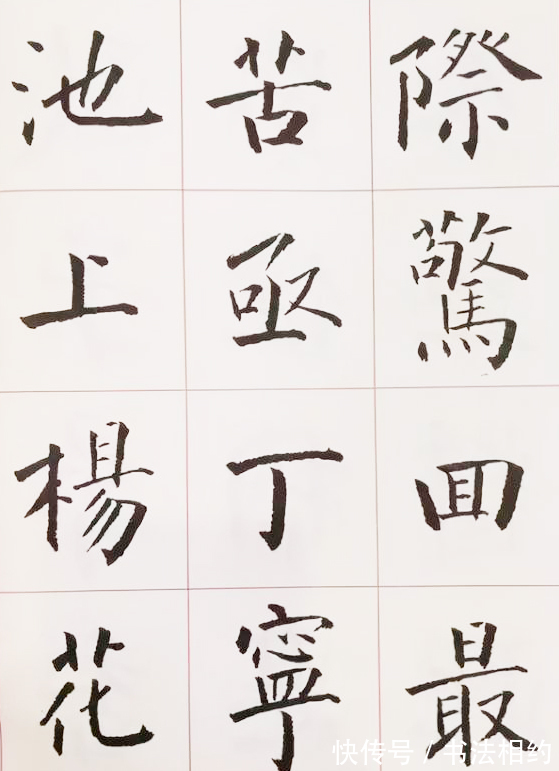 際驚囬最
苦亟丁寧
池上楊花
快传号 / 书法相约